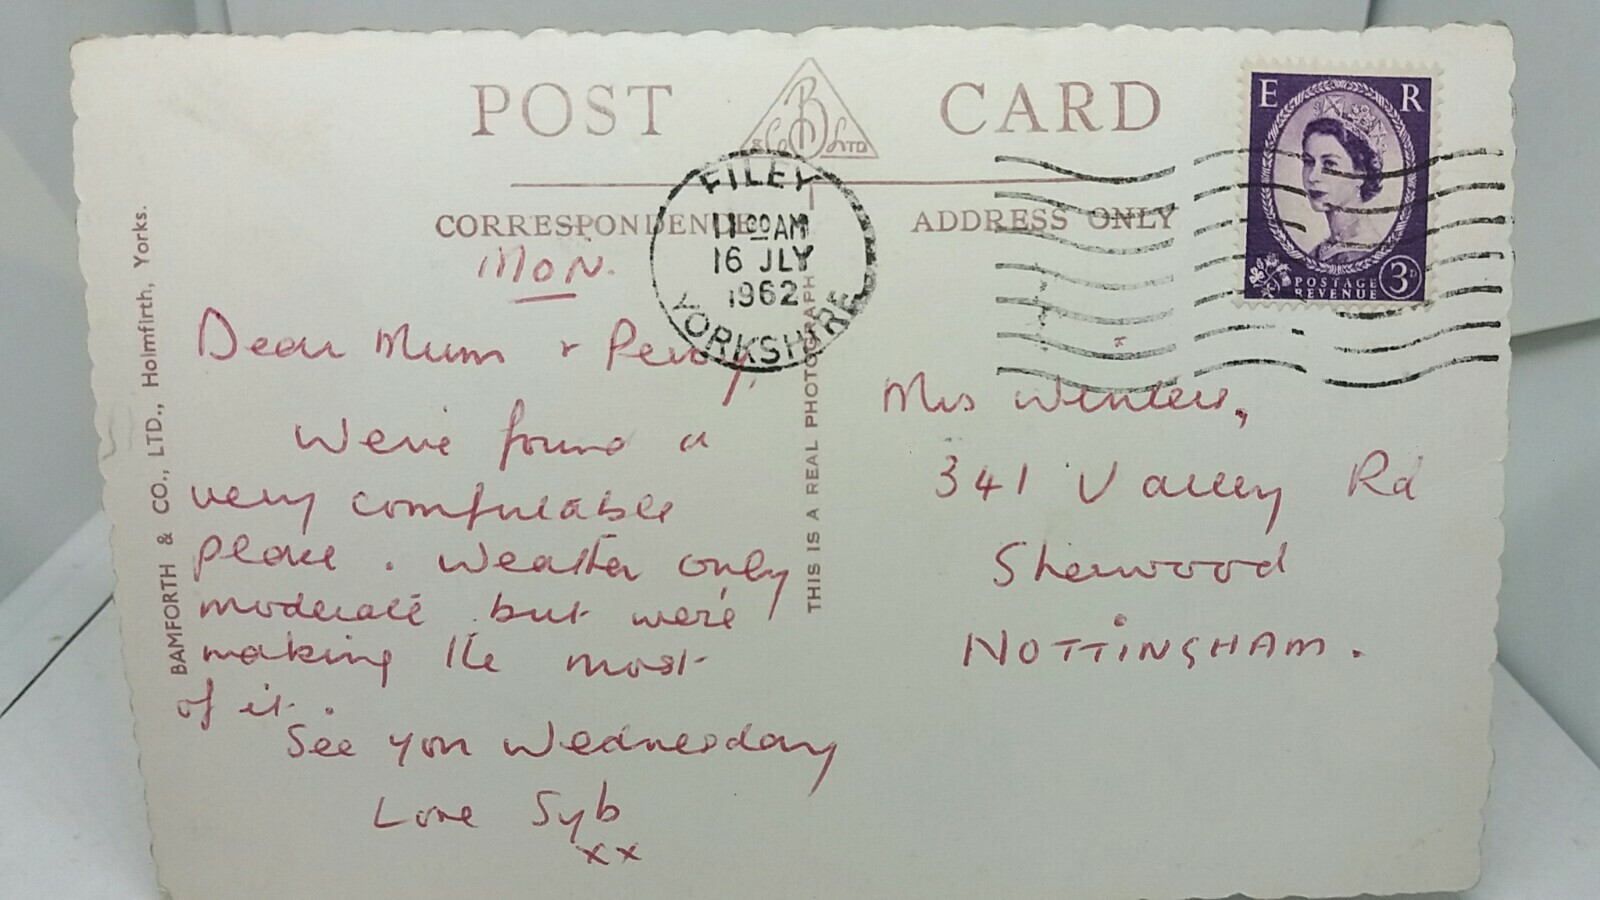 POST CARD
B & Co LTD
CORRESPONDENCE
ADDRESS ONLY
FILEY
11 00 AM
16 JLY
1962
YORKSHIRE
E R
POSTAGE
REVENUE
3D
BAMFORTH & CO., LTD., Holmfirth, Yorks.
THIS IS A REAL PHOTOGRAPH
MON.
Dear Mum + Percy,
We've found a
very comfortable
place. Weather only
moderate but we're
making the most
of it.
See you Wednesday
Love Syb
xx
Mrs Winters,
341 Valley Rd
Sherwood
NOTTINGHAM.